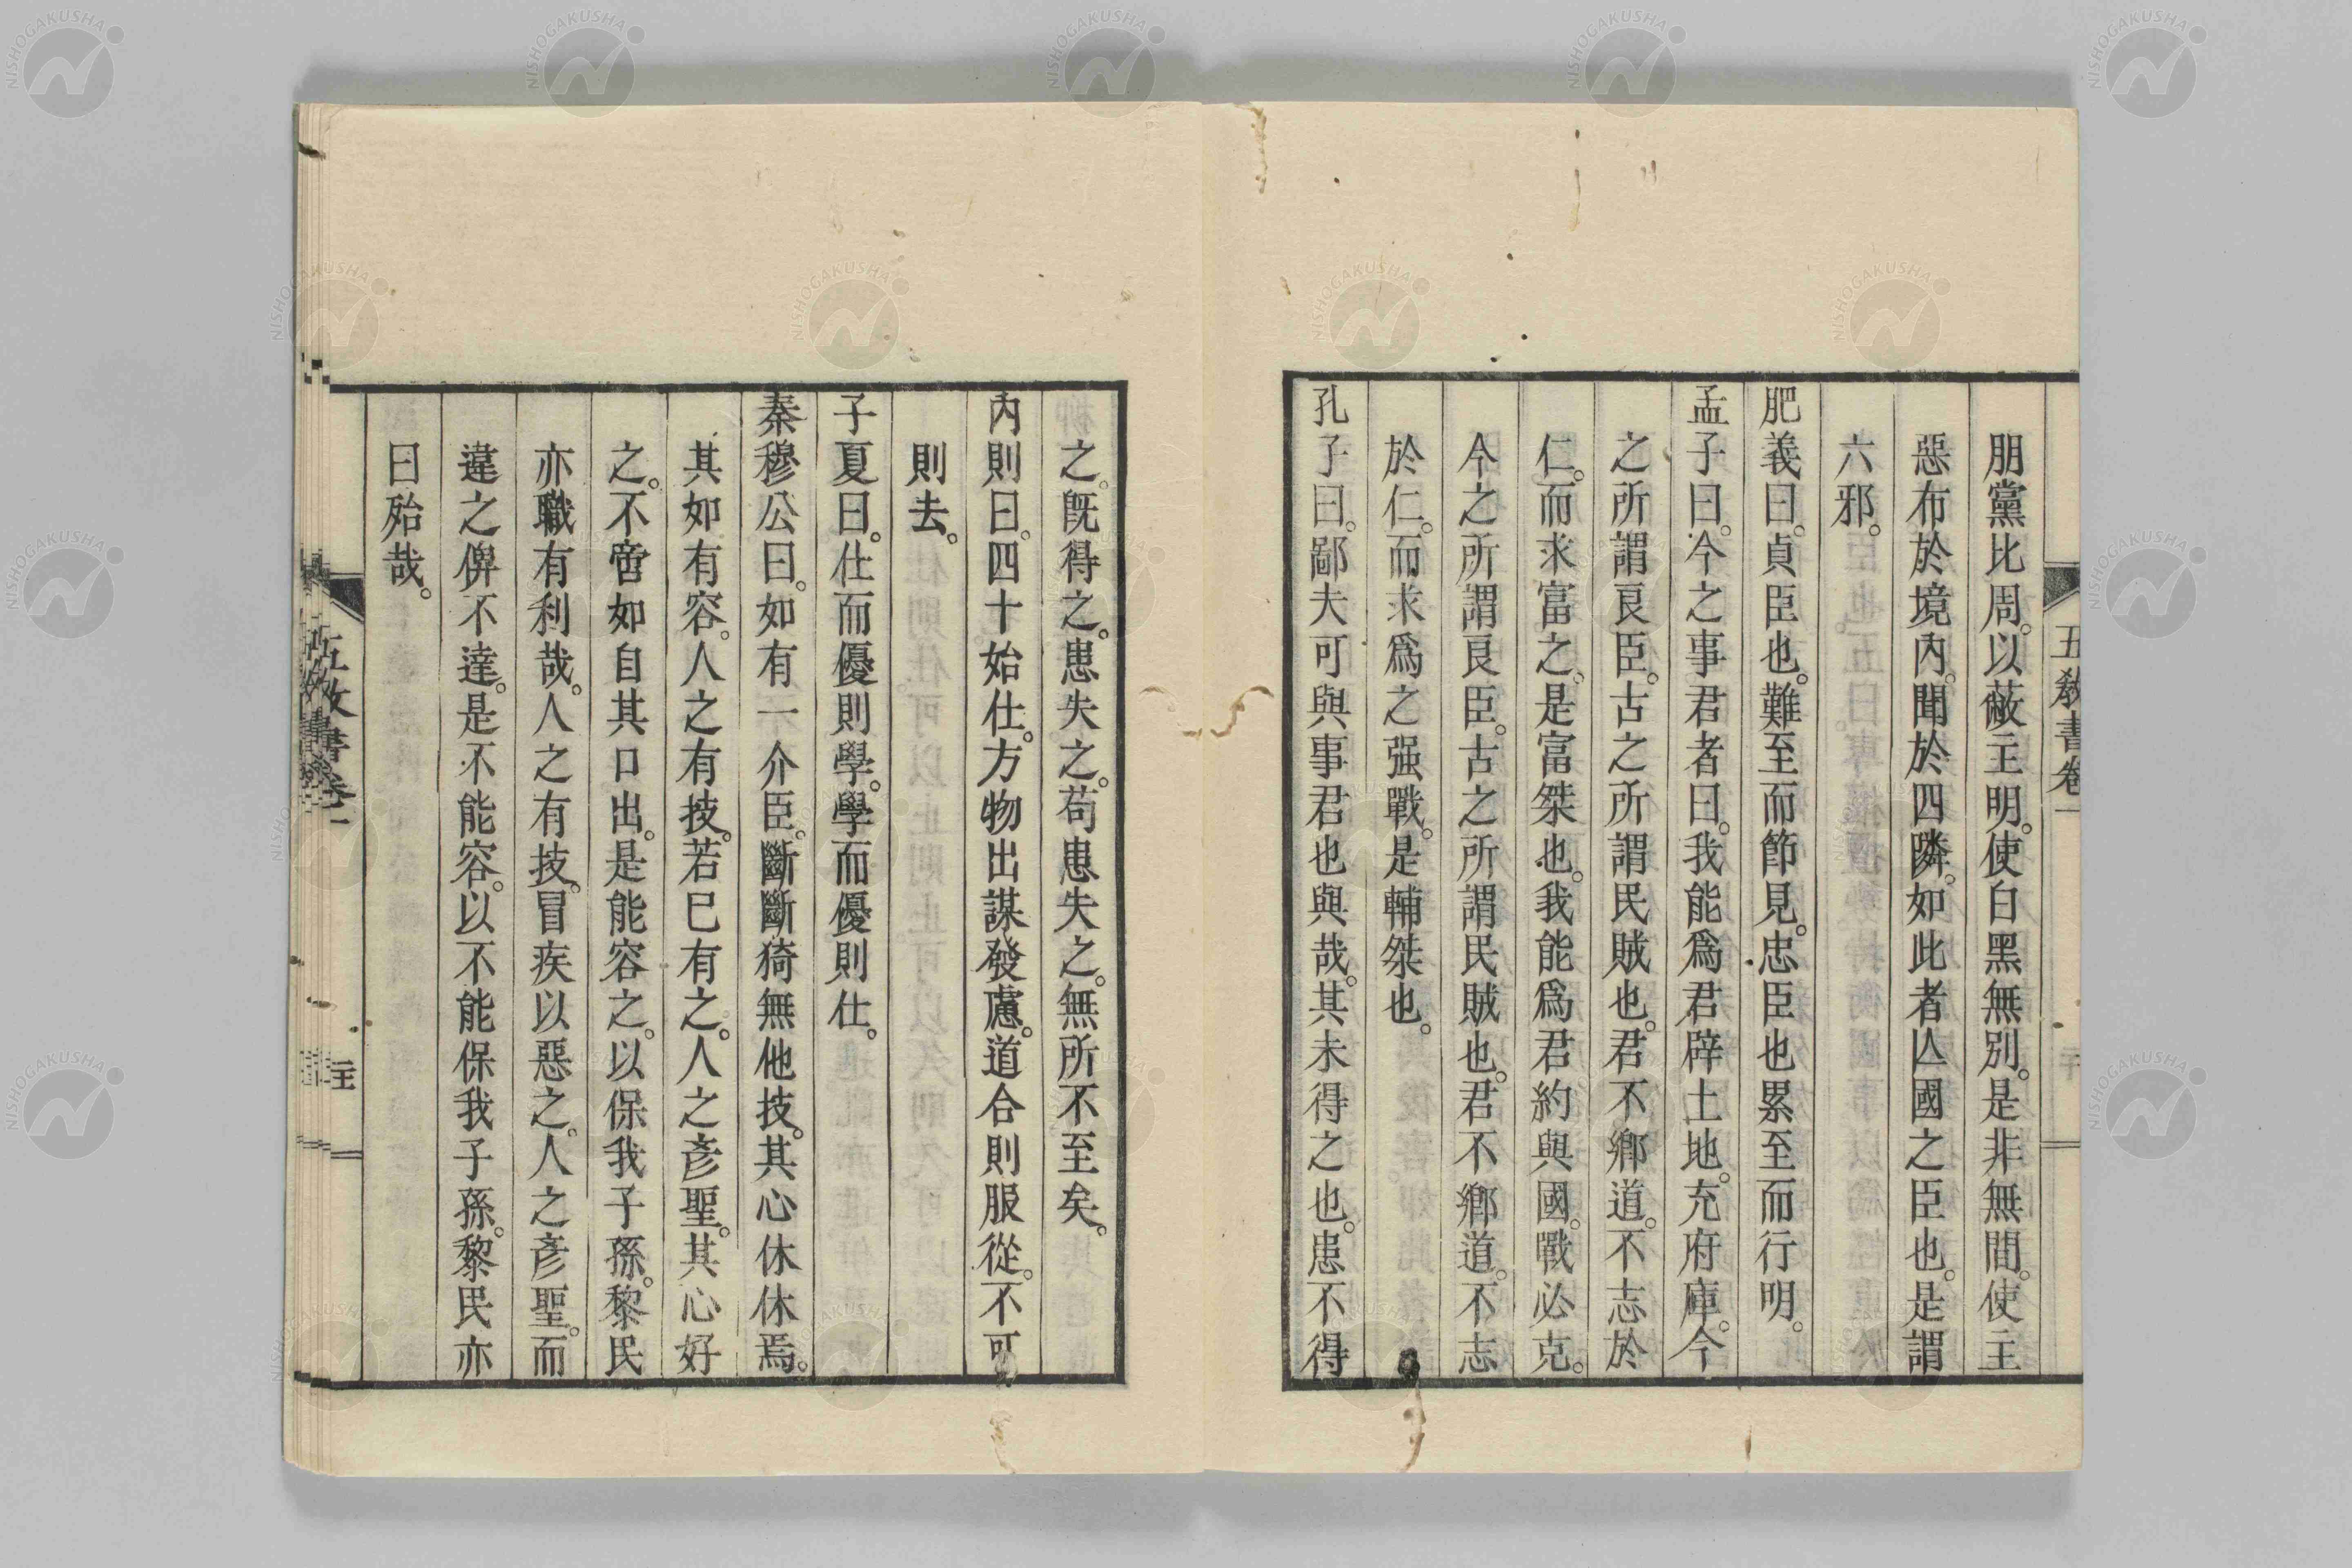 五教書卷一
朋黨比周。以蔽主明。使白黑無別。是非無間。使主
惡布於境內。聞於四隣。如此者亾國之臣也。是謂
六邪。
肥義曰。貞臣也。難至而節見。忠臣也累至而行明。
孟子曰。今之事君者曰。我能爲君辟土地。充府庫。今
之所謂良臣。古之所謂民賊也。君不鄉道。不志於
仁。而求富之。是富桀也。我能爲君約與國。戰必克。
今之所謂良臣。古之所謂民賊也。君不鄉道。不志
於仁。而求爲之强戰。是輔桀也。
孔子曰。鄙夫可與事君也與哉。其未得之也。患不得
之。既得之。患失之。苟患失之。無所不至矣。
內則曰。四十始仕。方物出謀發慮。道合則服從。不可
則去。
子夏曰。仕而優則學。學而優則仕。
秦穆公曰。如有一介臣。斷斷猗無他技。其心休休焉。
其如有容。人之有技。若已有之。人之彥聖。其心好
之。不啻如自其口出。是能容之。以保我子孫。黎民
亦職有利哉。人之有技。冒疾以惡之。人之彥聖。而
違之俾不達。是不能容。以不能保我子孫。黎民亦
曰殆哉。
五教書卷一
NISHOGAKUSHA